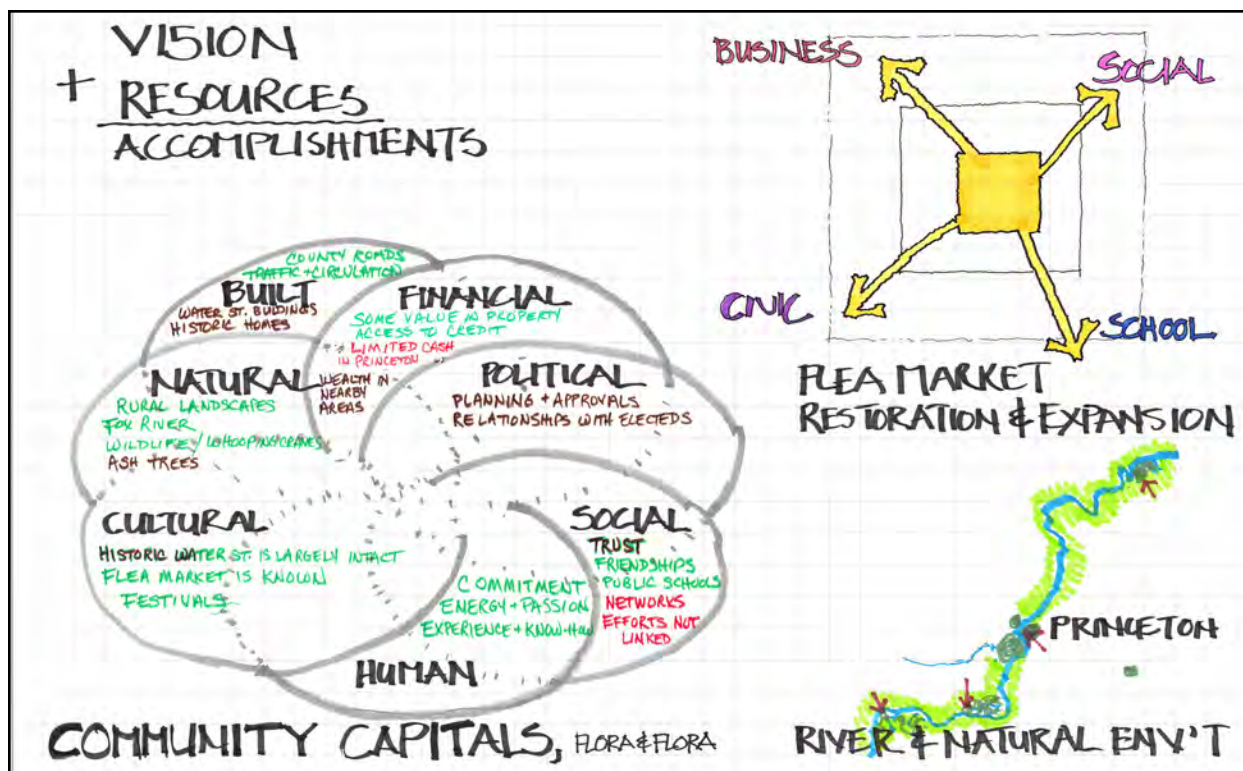 VISION
+ RESOURCES
ACCOMPLISHMENTS
COUNTY ROADS
TRAFFIC + CIRCULATION
BUILT
WATER ST. BUILDINGS
HISTORIC HOMES
FINANCIAL
SOME VALUE IN PROPERTY
ACCESS TO CREDIT
LIMITED CASH
IN PRINCETON
WEALTH IN
NEARBY
AREAS
NATURAL
RURAL LANDSCAPES
FOX RIVER
WILDLIFE / WHOOPING CRANES
ASH TREES
POLITICAL
PLANNING + APPROVALS
RELATIONSHIPS WITH ELECTEDS
CULTURAL
HISTORIC WATER ST. IS LARGELY INTACT
FLEA MARKET IS KNOWN
FESTIVALS
SOCIAL
TRUST
FRIENDSHIPS
PUBLIC SCHOOLS
NETWORKS
EFFORTS NOT
LINKED
COMMITMENT
ENERGY + PASSION
EXPERIENCE + KNOW-HOW
HUMAN
COMMUNITY CAPITALS, FLORA & FLORA
BUSINESS
SOCIAL
CIVIC
SCHOOL
FLEA MARKET
RESTORATION & EXPANSION
PRINCETON
RIVER & NATURAL ENV'T